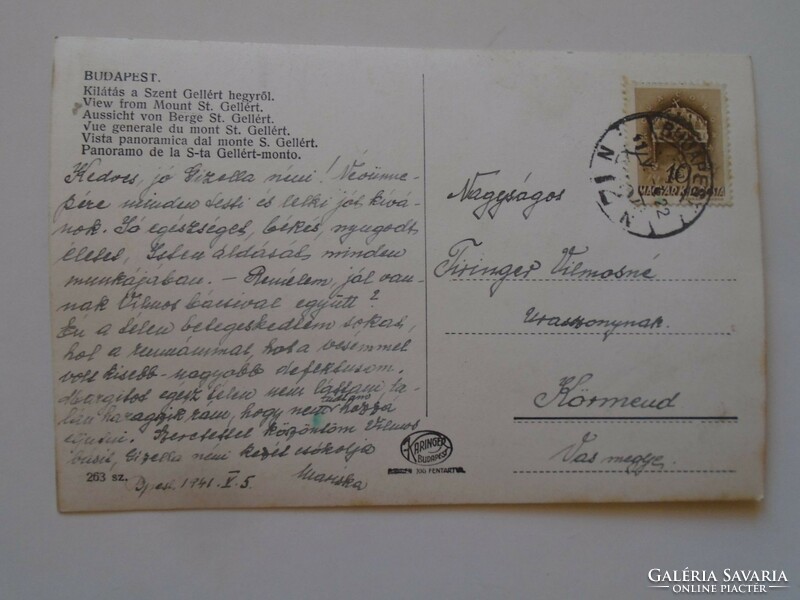 BUDAPEST.
Kilátás a Szent Gellért hegyről.
View from Mount St. Gellért.
Aussicht von Berge St. Gellért.
Vue generale du mont St. Gellért.
Vista panoramica dal monte S. Gellért.
Panoramo de la S-ta Gellért-monto.
Kedves, jó Gizella néni! Névünne-
pére minden testi és lelki jót kívá-
nok. Jó egészséget, békés, nyugodt
életet, Isten áldását minden
munkájában. – Remélem, jól van-
nak Vilmos bácsival együtt?
Én a télen betegeskedtem sokat,
hol a reumámmal, hol a vesémmel
volt kisebb-nagyobb defektusom.
Margitot egész télen nem láttam, ta-
lán haragszik rám, hogy nem hozzá
Szeretettel köszöntöm Vilmos
bácsit, Gizella néni kezét csókolja
1941. V. 5 Mariska
263 sz.
KARINGER
BUDAPEST
JOG FENTARTVA.
BUDAPEST
10
MAGYARORSZÁG
Nagyságos
Tiringer Vilmosné
Uraszonynak.
Körmend
Vas megye.
GALÉRIA SAVARIA
ONLINE PIACTÉR